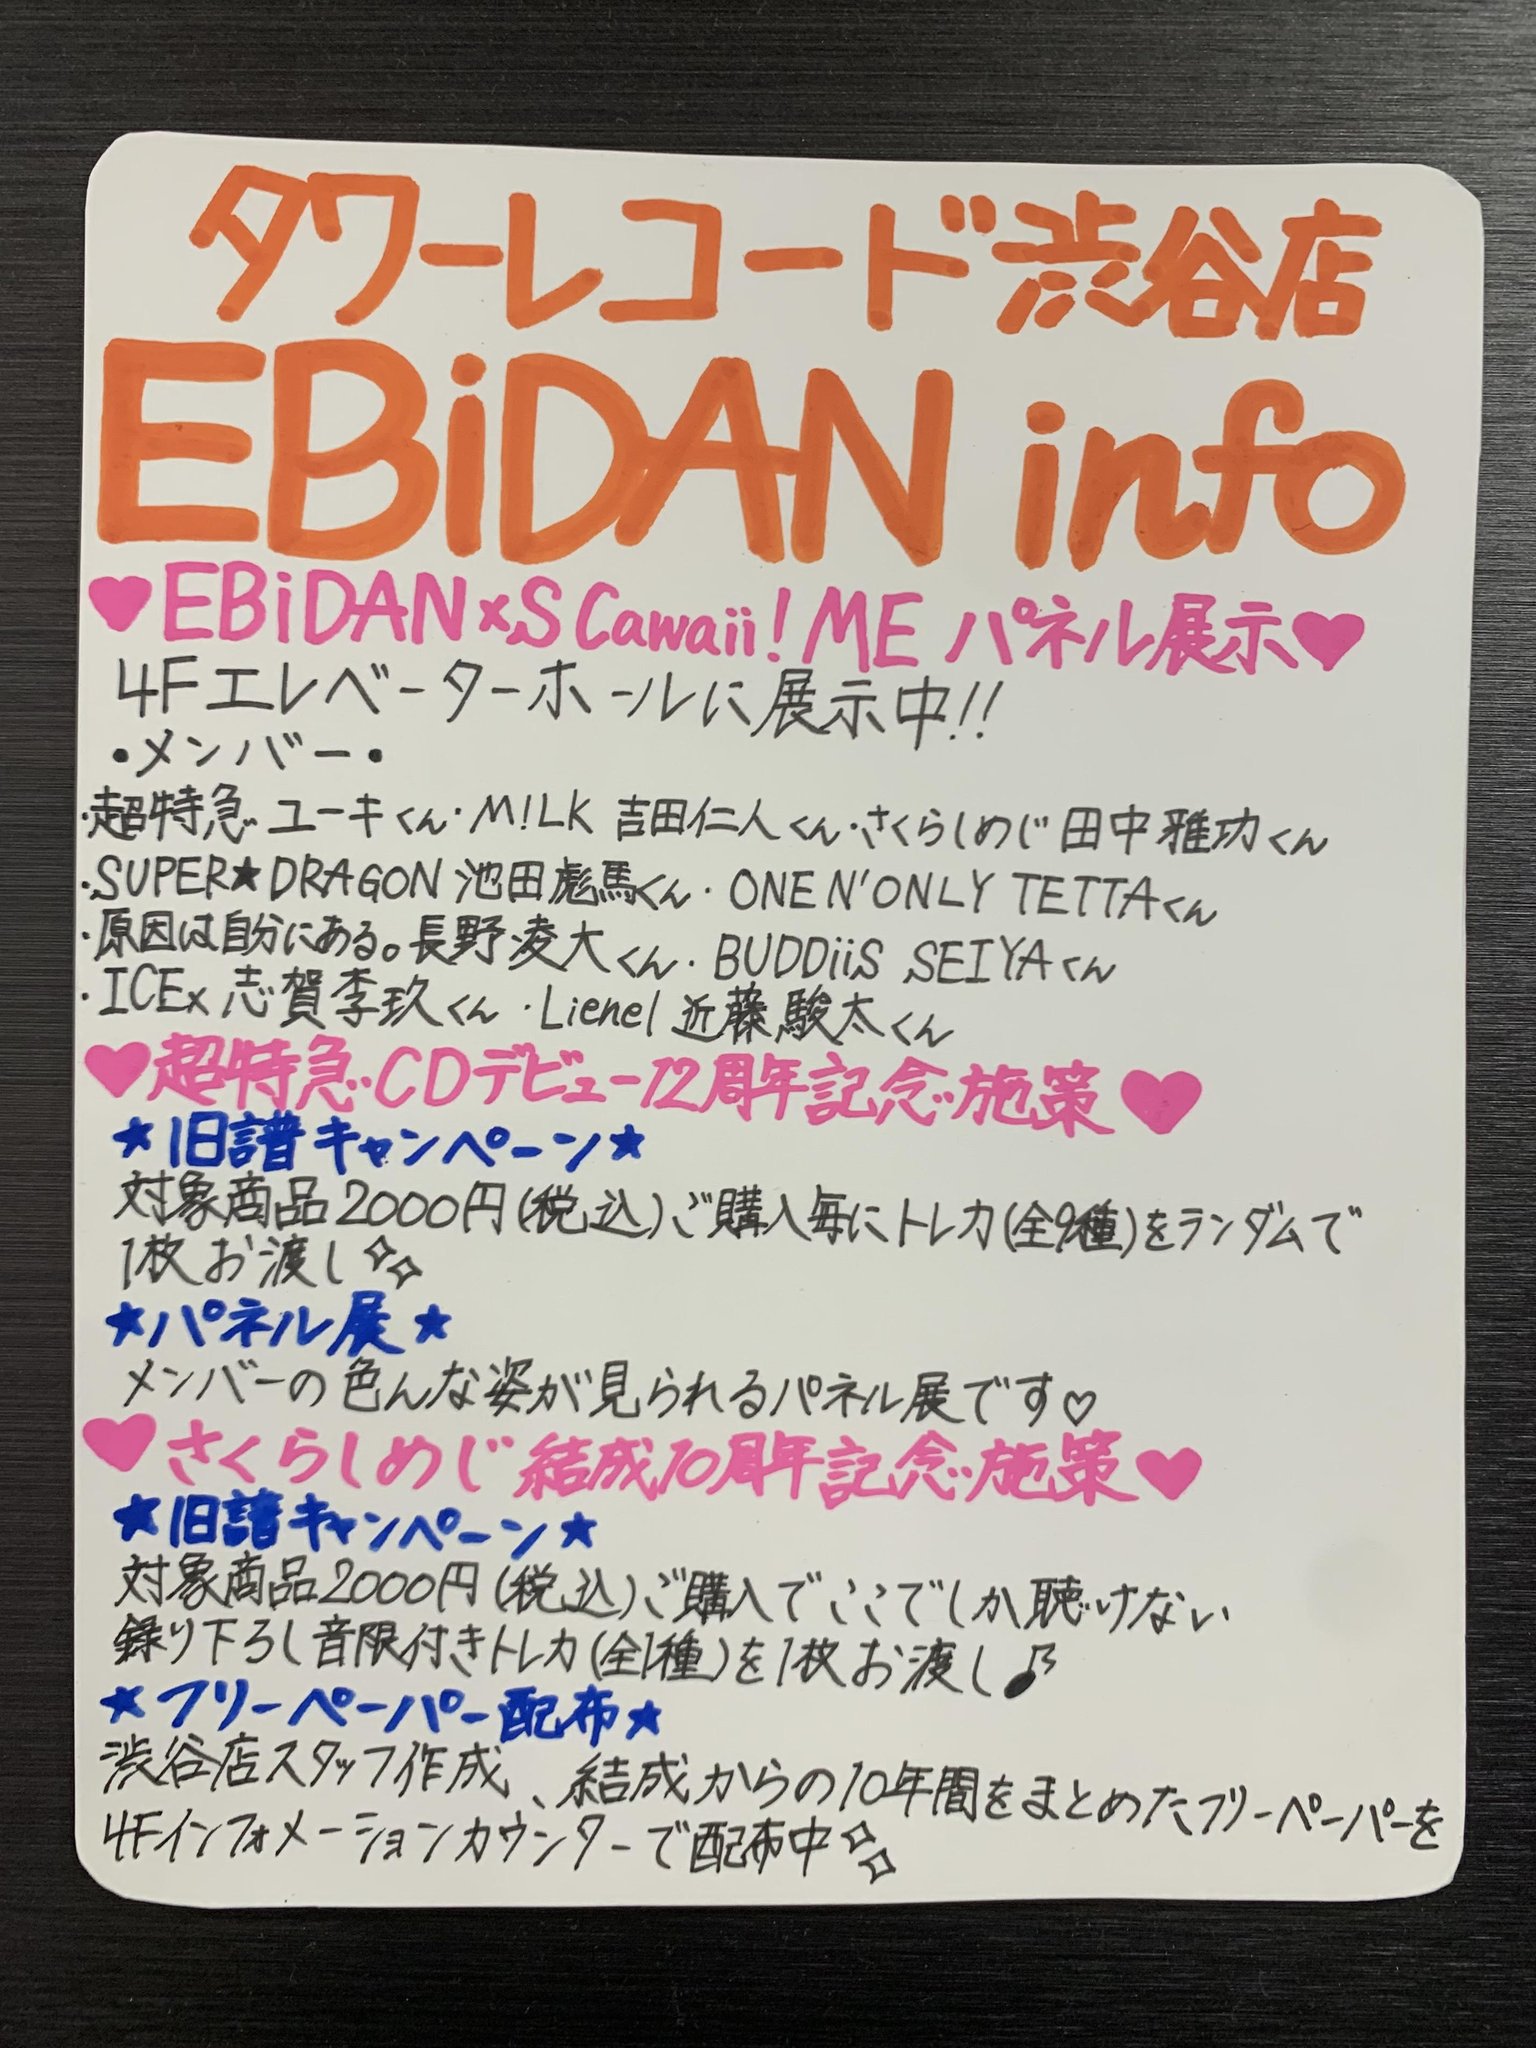 タワーレコード渋谷店
EBiDAN info
♥EBiDAN×S Cawaii! ME パネル展示♥
4Fエレベーターホールに展示中!!
・メンバー・
・超特急 ユーキくん・M!LK 吉田仁人くん・さくらしめじ 田中雅功くん
・SUPER★DRAGON 池田彪馬くん・ONE N'ONLY TETTAくん
・原因は自分にある。長野凌大くん・BUDDiiS SEIYAくん
・ICEx 志賀李玖くん・Lienel 近藤駿太くん
♥超特急 CDデビュー12周年記念施策♥
★旧譜キャンペーン★
対象商品2000円(税込)ご購入毎にトレカ(全9種)をランダムで
1枚お渡し✨
★パネル展★
メンバーの色んな姿が見られるパネル展です♡
♥さくらしめじ 結成10周年記念施策♥
★旧譜キャンペーン★
対象商品2000円(税込)ご購入でここでしか聴けない
録り下ろし音源付きトレカ(全1種)を1枚お渡し♪
★フリーペーパー配布★
渋谷店スタッフ作成、結成からの10年間をまとめたフリーペーパーを
4Fインフォメーションカウンターで配布中✨